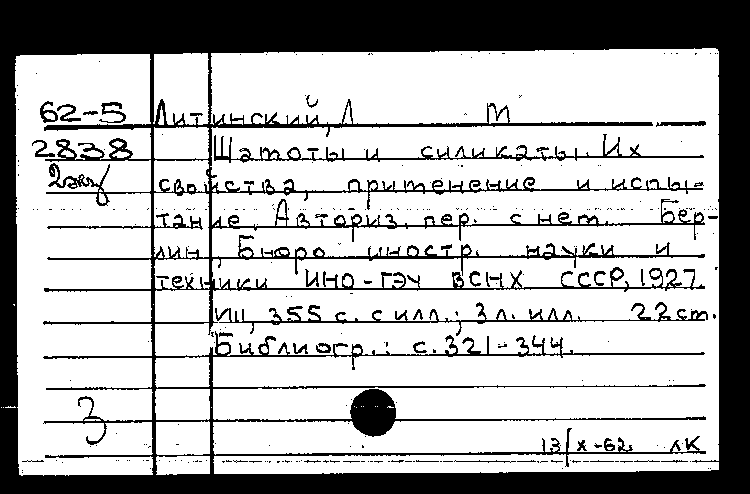 62-5 Литинский, Л М
2838 Шамоты и силикаты. Их
2экз свойства, применение и испы-
тание. Авториз. пер. с нем. Бер-
лин, Бюро иностр. науки и
техники ИНО-ГЭЧ ВСНХ СССР, 1927.
VIII, 355 с. с илл.; 3 л. илл. 22 cm.
Библиогр.: с. 321-344.
3
13/X-62 ЛК